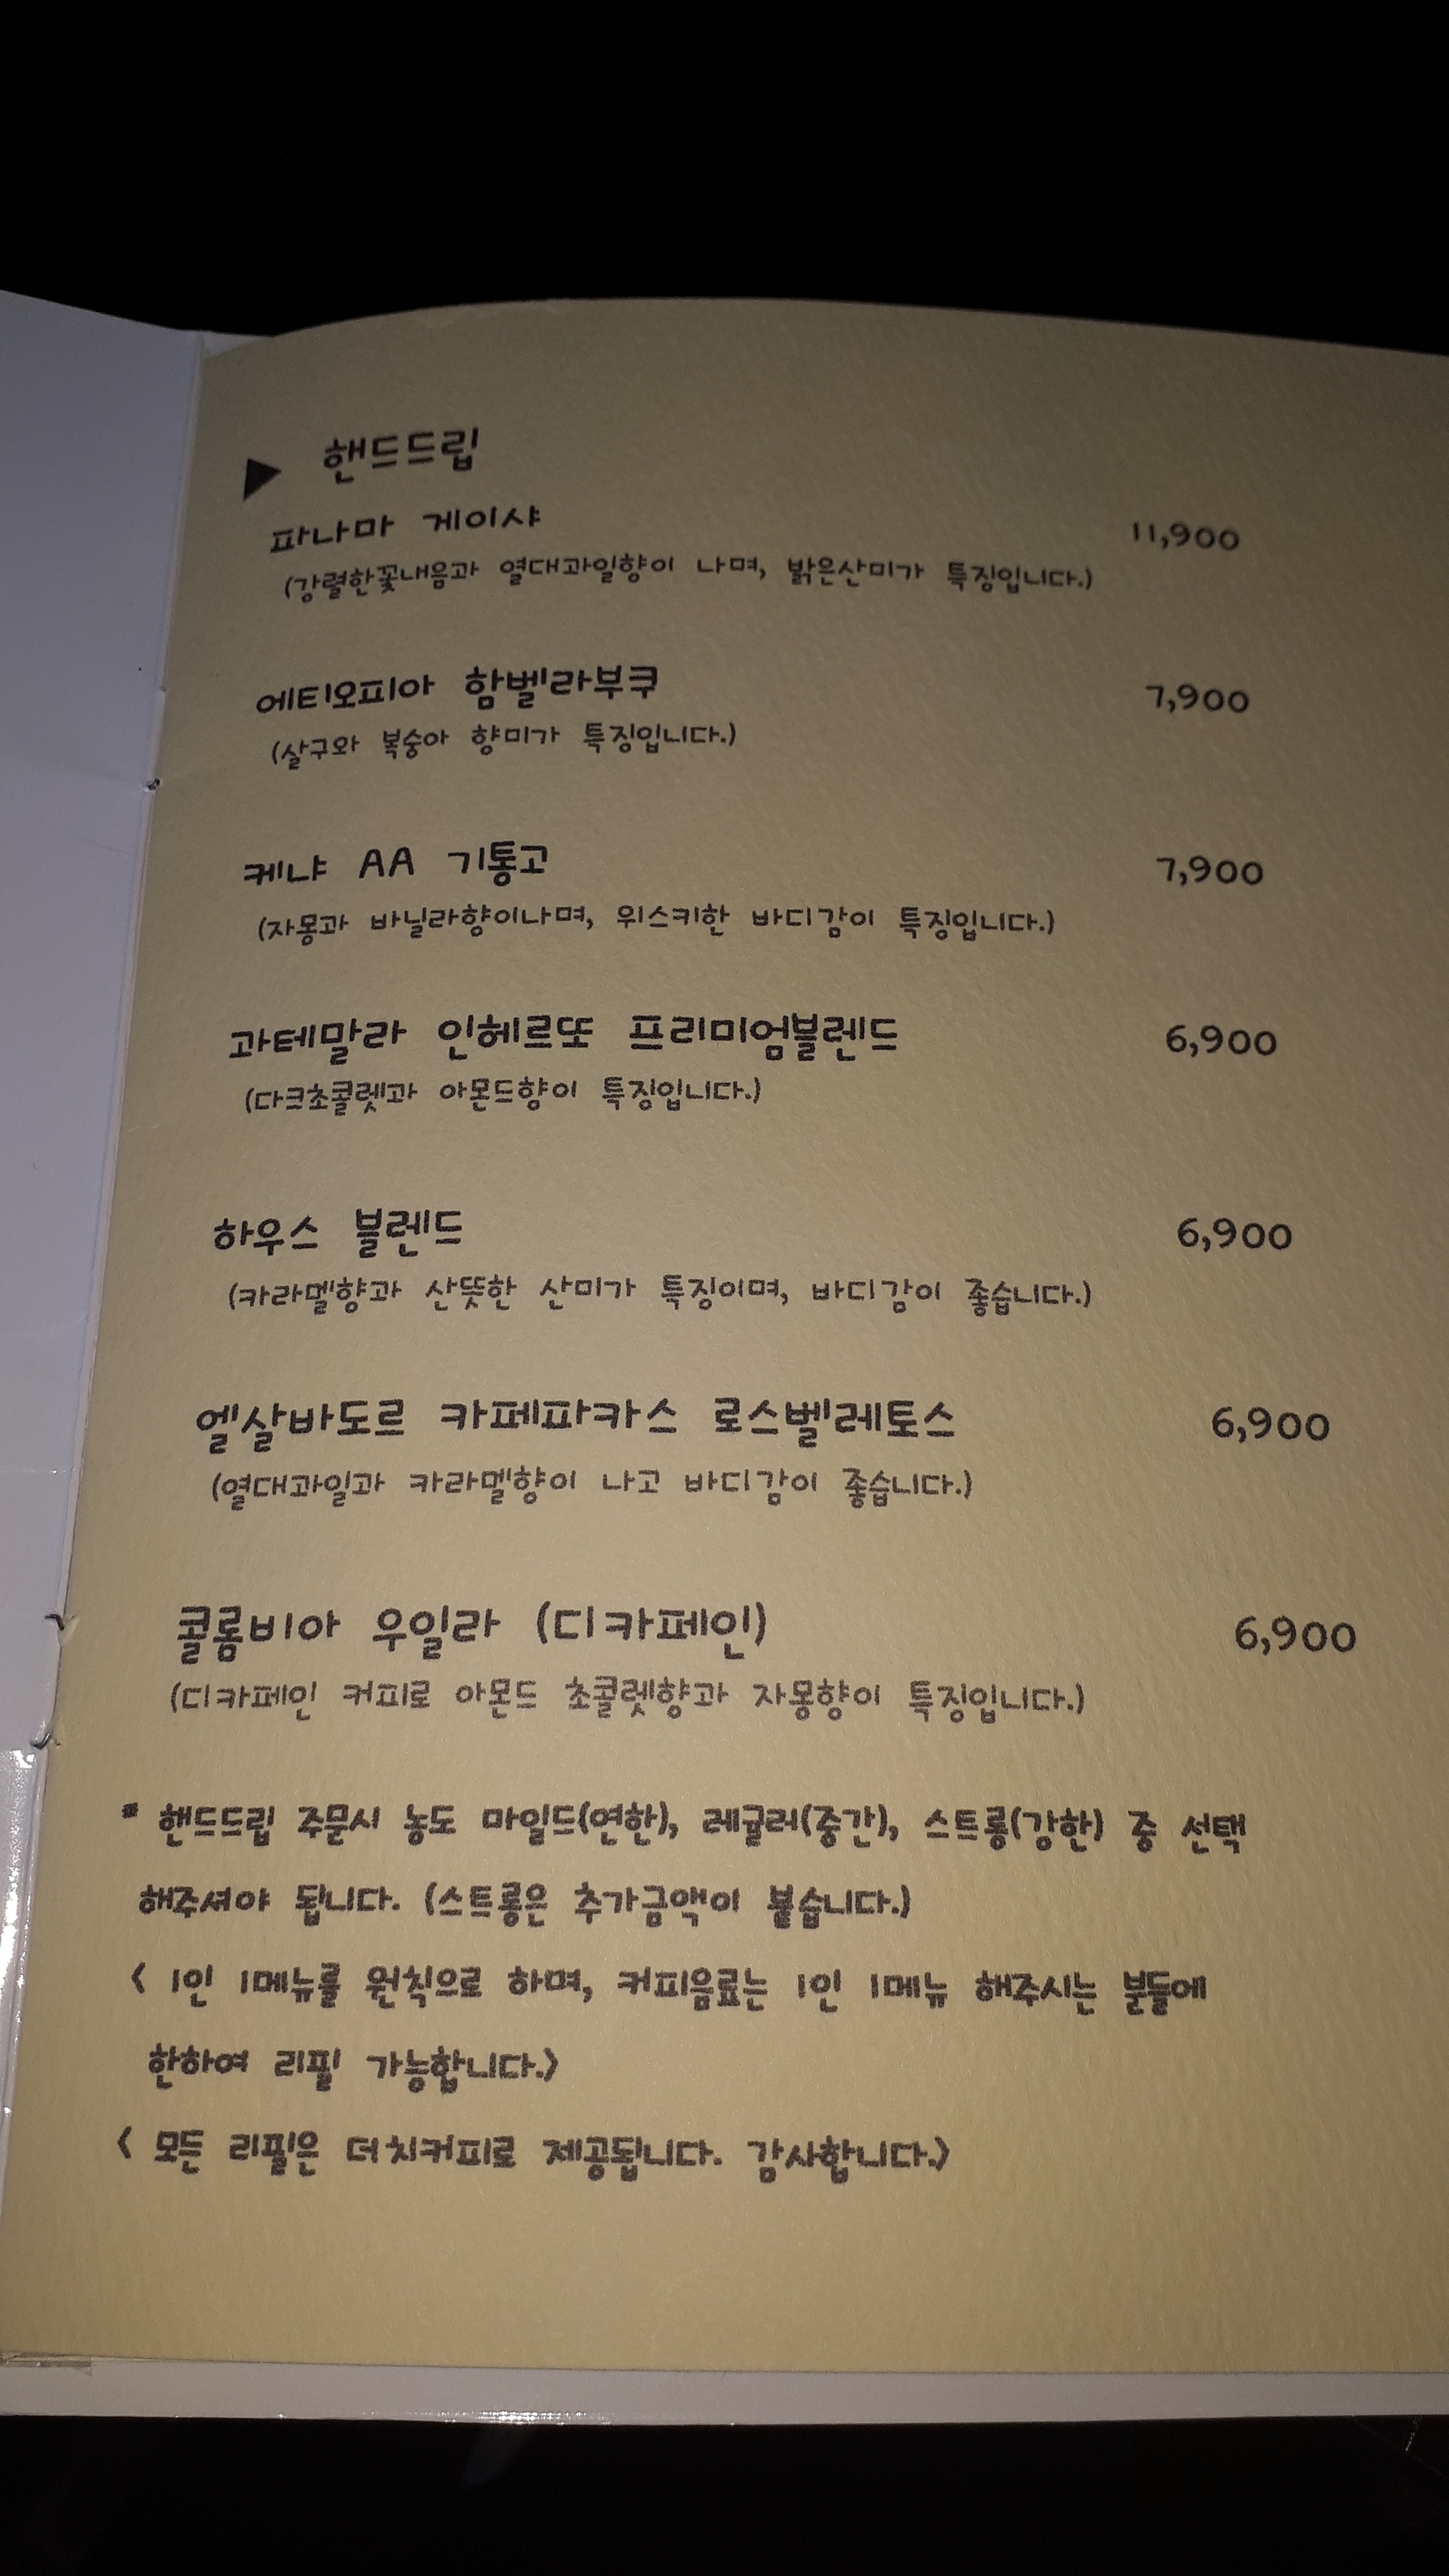 ▶ 핸드드립
파나마 게이샤 11,900
(강렬한꽃내음과 열대과일향이 나며, 밝은산미가 특징입니다.)
에티오피아 함벨라부쿠 7,900
(살구와 복숭아 향미가 특징입니다.)
케냐 AA 기통고 7,900
(자몽과 바닐라향이나며, 위스키한 바디감이 특징입니다.)
과테말라 인헤르또 프리미엄블렌드 6,900
(다크초콜렛과 아몬드향이 특징입니다.)
하우스 블렌드 6,900
(카라멜향과 산뜻한 산미가 특징이며, 바디감이 좋습니다.)
엘살바도르 카페파카스 로스벨레토스 6,900
(열대과일과 카라멜향이 나고 바디감이 좋습니다.)
콜롬비아 우일라 (디카페인) 6,900
(디카페인 커피로 아몬드 초콜렛향과 자몽향이 특징입니다.)
* 핸드드립 주문시 농도 마일드(연한), 레귤러(중간), 스트롱(강한) 중 선택
해주셔야 됩니다. (스트롱은 추가금액이 붙습니다.)
< 1인 1메뉴를 원칙으로 하며, 커피음료는 1인 1메뉴 해주시는 분들에
한하여 리필 가능합니다.>
< 모든 리필은 더치커피로 제공됩니다. 감사합니다.>